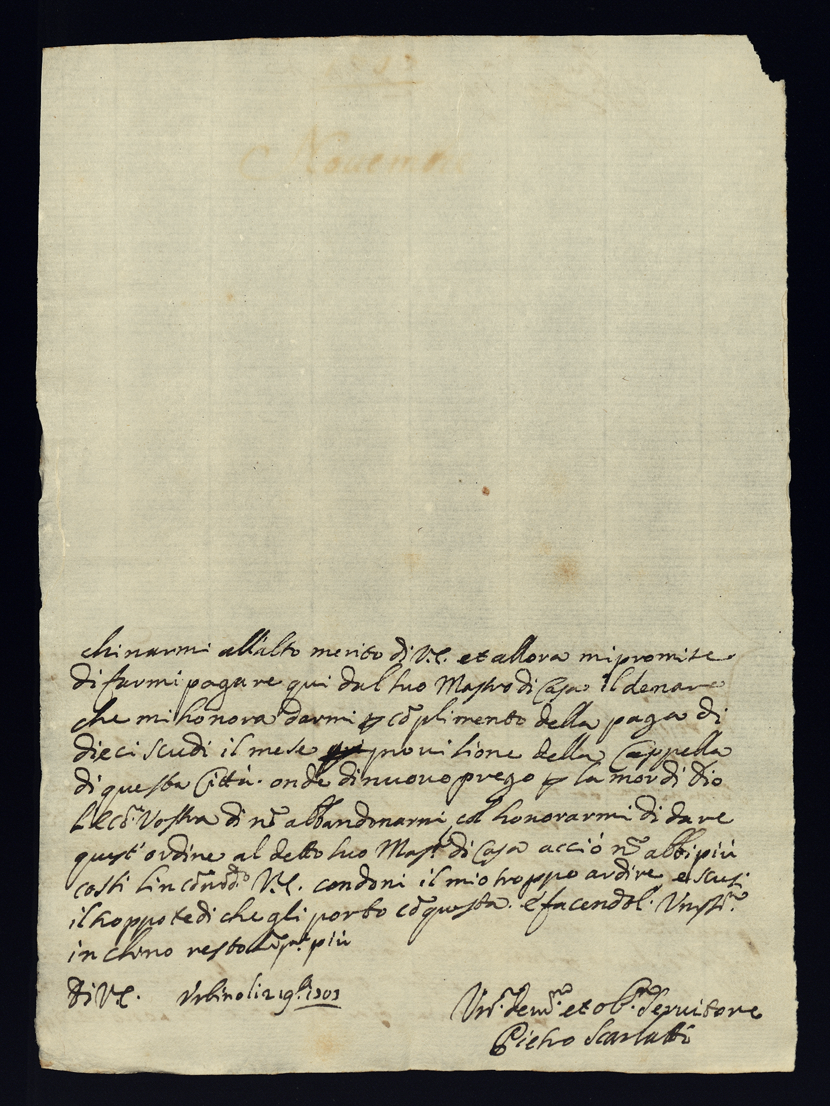 Novembre
chinarmi all'alto merito di V.E. et allora mi promise
di farmi pagare qui dal suo Mastro di Casa il denaro
che mi honora darmi p cõplimento della paga di
dieci scudi il mese provisione della Cappella
di questa Città. onde di nuovo prego p la mor di Dio
di nõ abbandonarmi, col honorarmi di dare
quest'ordine al detto suo Mast.º di Casa acciò nõ abbi più
costì V.E. condoni il mio troppo ardire e scusi
il troppo tedi che gli porto cõ questa. e facendol.
inchino resto più
Di V.E. Urbino li 2 9b. 1703
et ob. servitore
Pietro Scarlatti